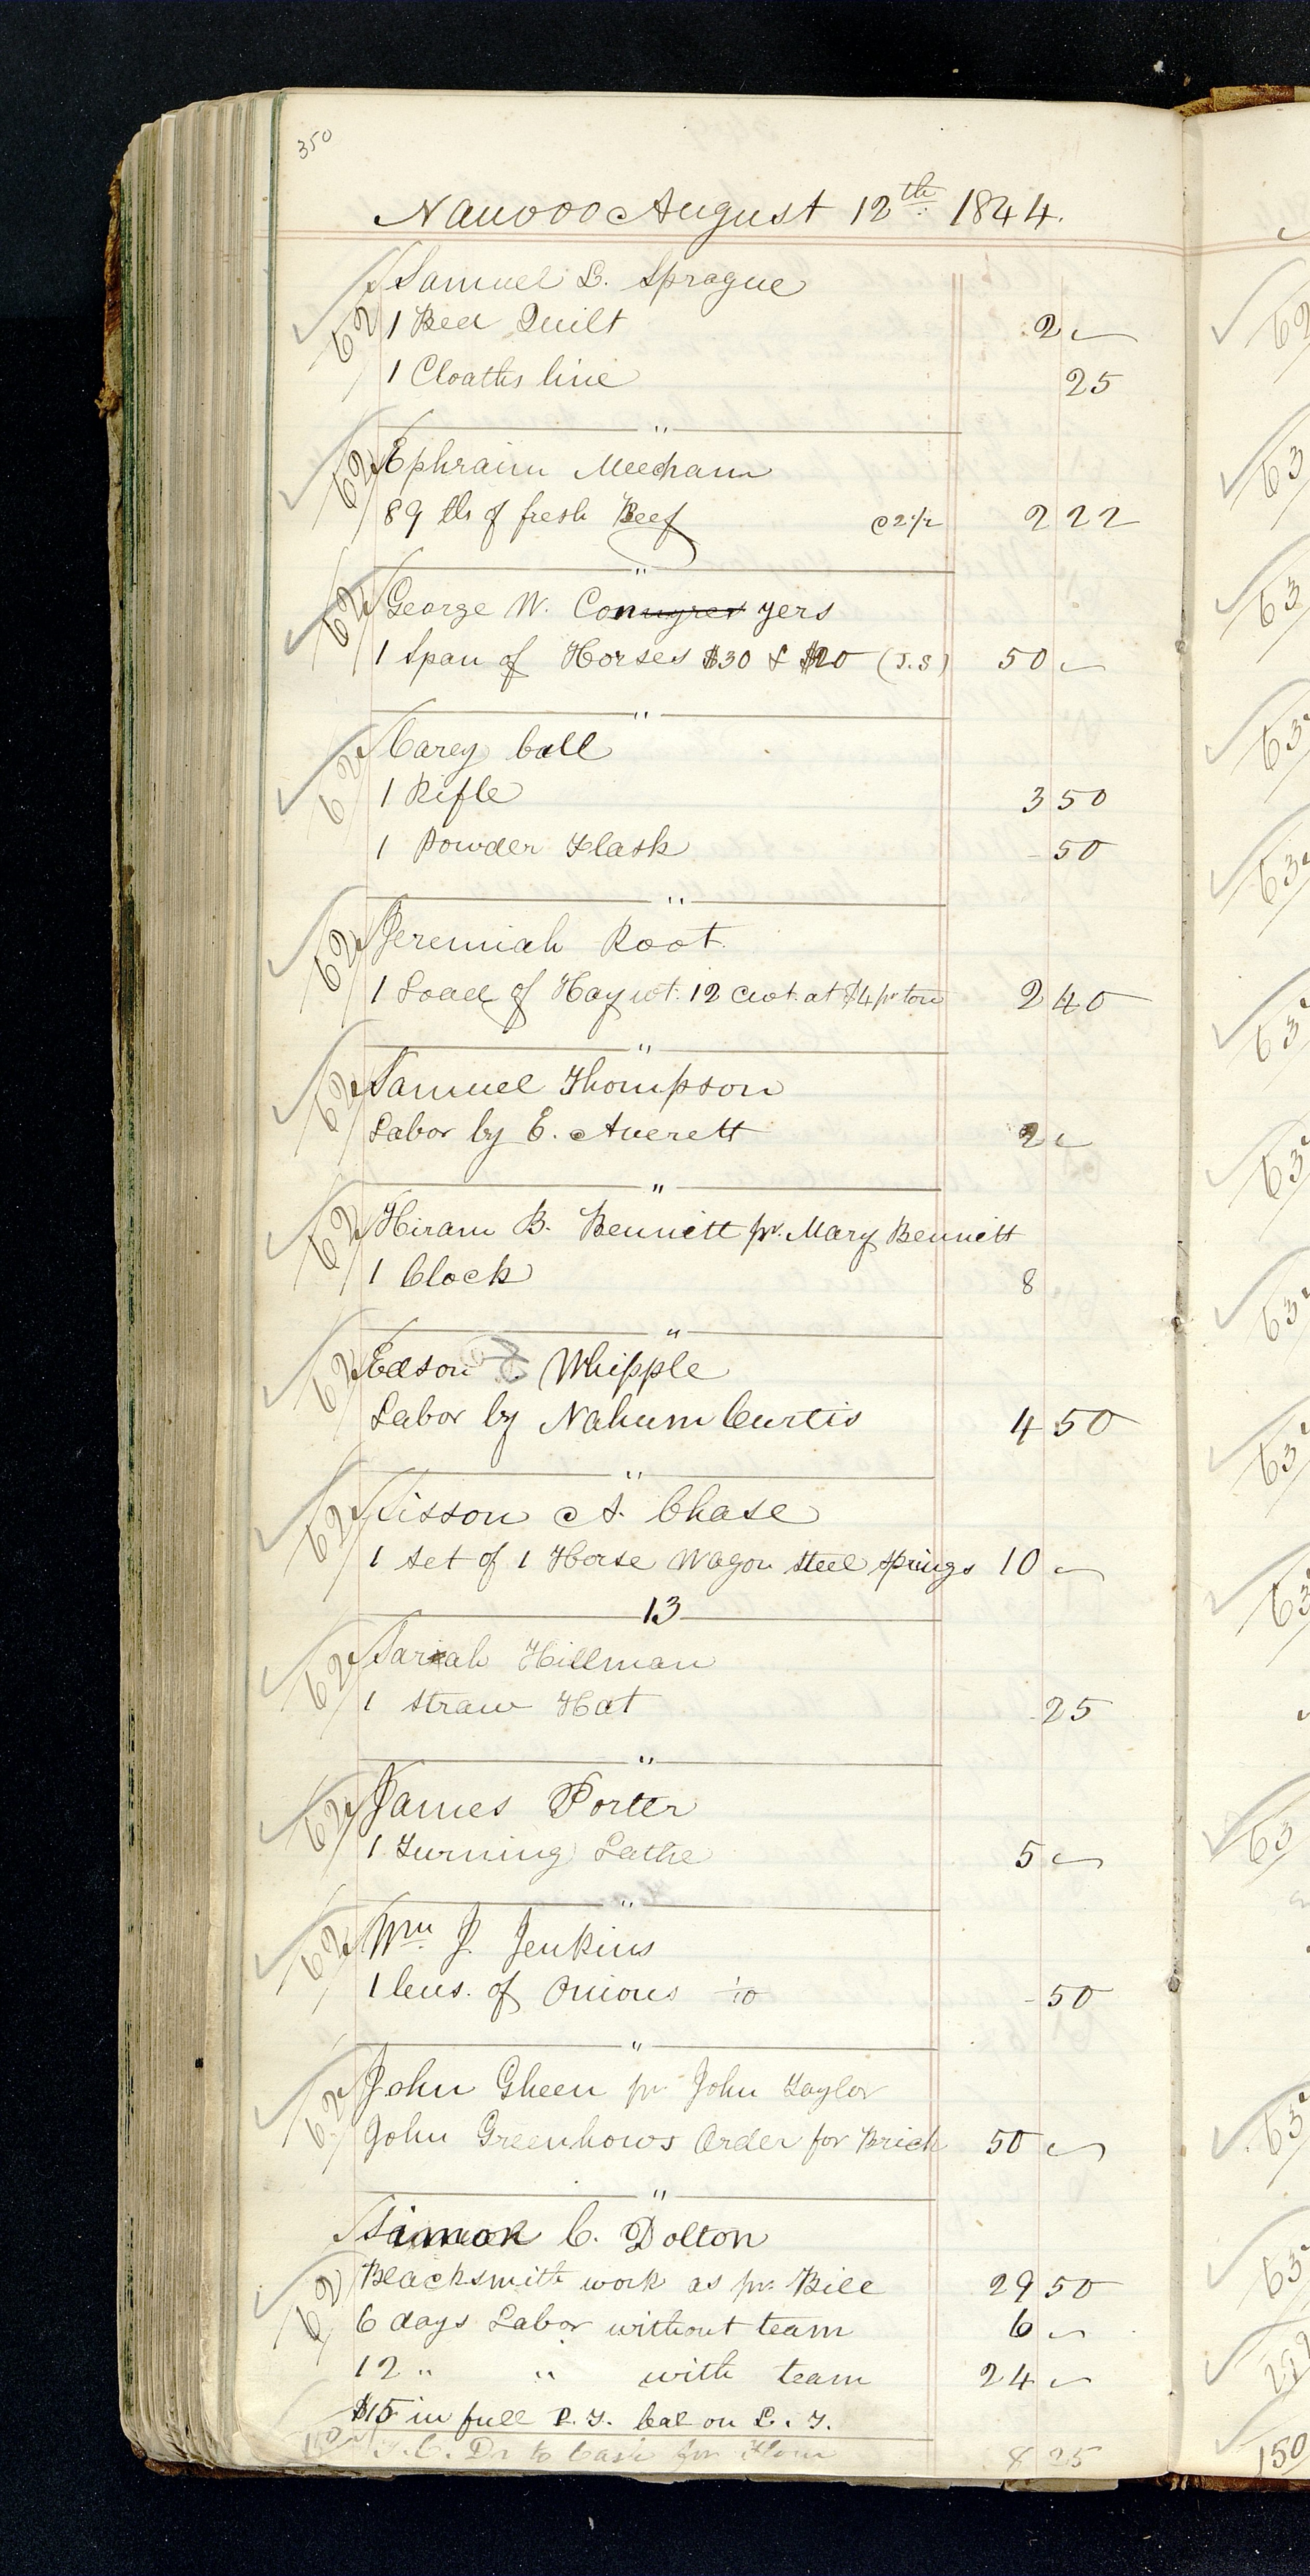 350
Nauvoo August 12th 1844.
62 Samuel L. Sprague
1 Bed Quilt 2 —
1 Cloaths line 25
"
62 Ephraim Meecham
89 lbs of fresh Beef @ 2 1/2 2 22
"
62 George W. Conyers yers
1 Span of Horses $30 & $20 (J.S) 50 —
"
62 Carey Call
1 Rifle 3 50
1 Powder Flask - 50
"
62 Jeremiah Root.
1 Load of Hay wt. 12 cwt. at $4 pr ton 2 40
"
62 Samuel Thompson
Labor by E. Averett 2 —
"
62 Hiram B. Bennett pr. Mary Bennett
1 Clock 8
"
62 Edson Whipple
Labor by Nahum Curtis 4 50
"
62 Sisson A. Chase
1 Set of 1 Horse Wagon steel springs 10 —
13
62 Sariah Hillman
1 Straw Hat - 25
"
62 James Porter
1 Turning Lathe 5 —
"
62 Wm J. Jenkins
1 bus. of Onions 1/10 - 50
"
62 John Gheen pr John Taylor
John Greenhows Order for Brick 50 —
"
Simon C. Dolton
62 Blacksmith work as pr. Bill 29 50
6 days Labor without team 6 —
12 " " with team 24 —
$15 in full P. T. bal on L. T.
T. C. Dr to Cash for Flour 8 25
62
63
63
63
63
63
63
63
63
63
63
63
63
150